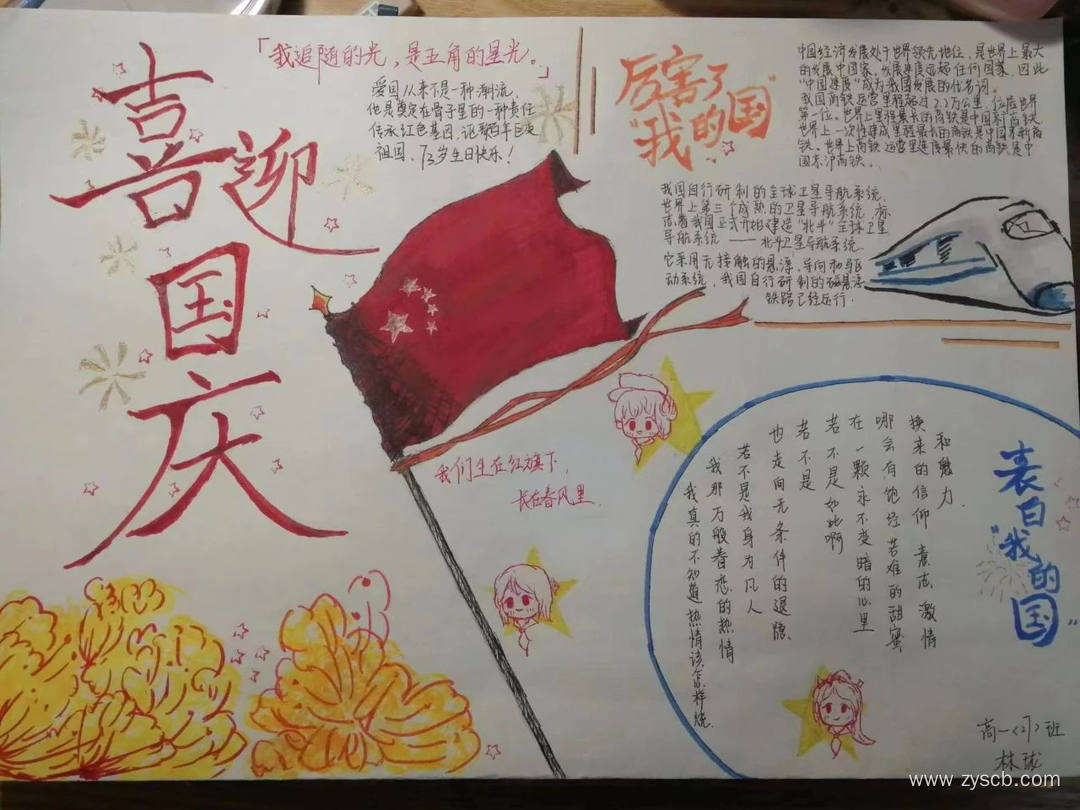 喜迎国庆
「我追随的光，是五角的星光。」
爱国从来不是一种潮流,
他是奠定在骨子里的一种责任
传承红色基因,讴歌百年巨变
祖国,73岁生日快乐!
厉害了
"我的国"
中国经济发展处于世界领先地位,是世界上最大
的发展中国家,发展速度远超任何国家,因此
"中国速度"成为我国发展的代名词。
我国高铁运营里程超过2.2万公里,位居世界
第一位。世界上里程最长的高铁是中国京广高铁
世界上一次性建成里程最长的高铁是中国兰新高
铁。世界上高铁运营里速度最快的高铁是中
国京沪高铁。
我国自行研制的全球卫星导航系统.
世界上第三个成熟的卫星导航系统,标
志着我国正式开始建造"北斗"全球卫星
导航系统——北斗卫星导航系统.
它采用无接触的悬浮,导向和驱
动系统,我国自行研制的磁悬浮
铁路已经运行.
我们生在红旗下,
长在春风里.
表白"我的国"
和魅力.
换来的信仰 意志 激情
哪会有饱经苦难的甜蜜
在一颗永不变暗的心里
若不是如此啊
若不是
也走向无条件的退隐.
若不是我身为凡人
我那万般眷恋的热情
我真的不知道热情该怎样统.
高一<27>班
林珑
www.zyscb.com